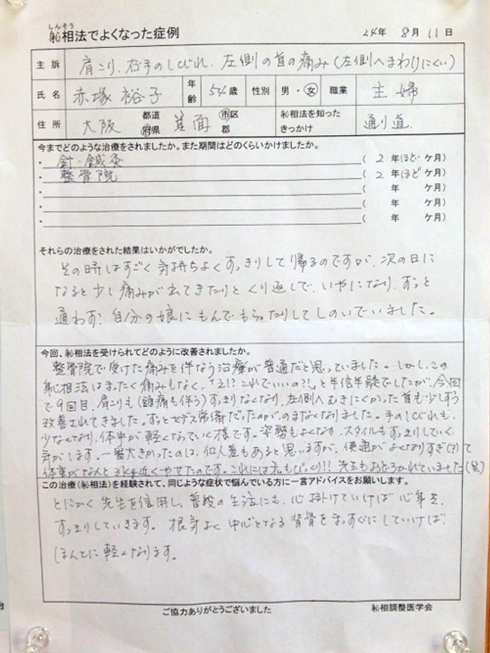 しんそう
㊙相法でよくなった症例
24年 8月 11日
主訴 肩こり、右手のしびれ、左側の首の痛み(左側へまわりにくい)
氏名 赤塚 裕子 年齢 54歳 性別 男・女 職業 主婦
住所 大阪 都道府県 箕面 市区郡 相法を知ったきっかけ 通り道
今までどのような治療をされましたか。また期間はどのくらいかけましたか。
・針・鍼灸 (2年ほど ケ月)
・整骨院 (2年ほど ケ月)
・ (年 ケ月)
・ (年 ケ月)
・ (年 ケ月)
それらの治療をされた結果はいかがでしたか。
その時はすごく気持ちよくすっきりして帰るのですが、次の日に
なると少し痛みが出てきたりとくり返しで、いやになり、ずっと
通わず、自分の娘にもんでもらったりしてしのいでいました。
今回、相法を受けられてどのように改善されましたか。
整骨院で受けた痛みを伴なう治療が普通だと思っていました。しかし、この
相法はまったく痛みもなく、"え!? これでいいの?!"と半信半疑でしたが、今回
で9回目、肩こりも(頭痛も伴う)すっまりなくなり、左側へむきにくかった首も少しずつ
改善されてきました。ずっとセデス常備だったのが、のまなくなりました。手のしびれも、
少なくなり、体中が軽くなっていく様です。姿勢もよくなり、スタイルもすっきりしていく
気がします。一番大きかったのは、個人差もあると思いますが、便通がよくなりすぎ(?)て
体重がなんと
近くやせたのです。これには先もびっくり!! 先生もおどろかれていました(笑)
この治療(相法)を経験されて、同じような症状で悩んでいる方に一言アドバイスをお願いします。
とにかく先生を信用し、普段の生活にも、心掛けていけば心身を、
すっきりしていきます。根気よく中心となる背骨をまっすぐにしていけば
ほんとに軽くなります。
ご協力ありがとうございました
相調整医学会